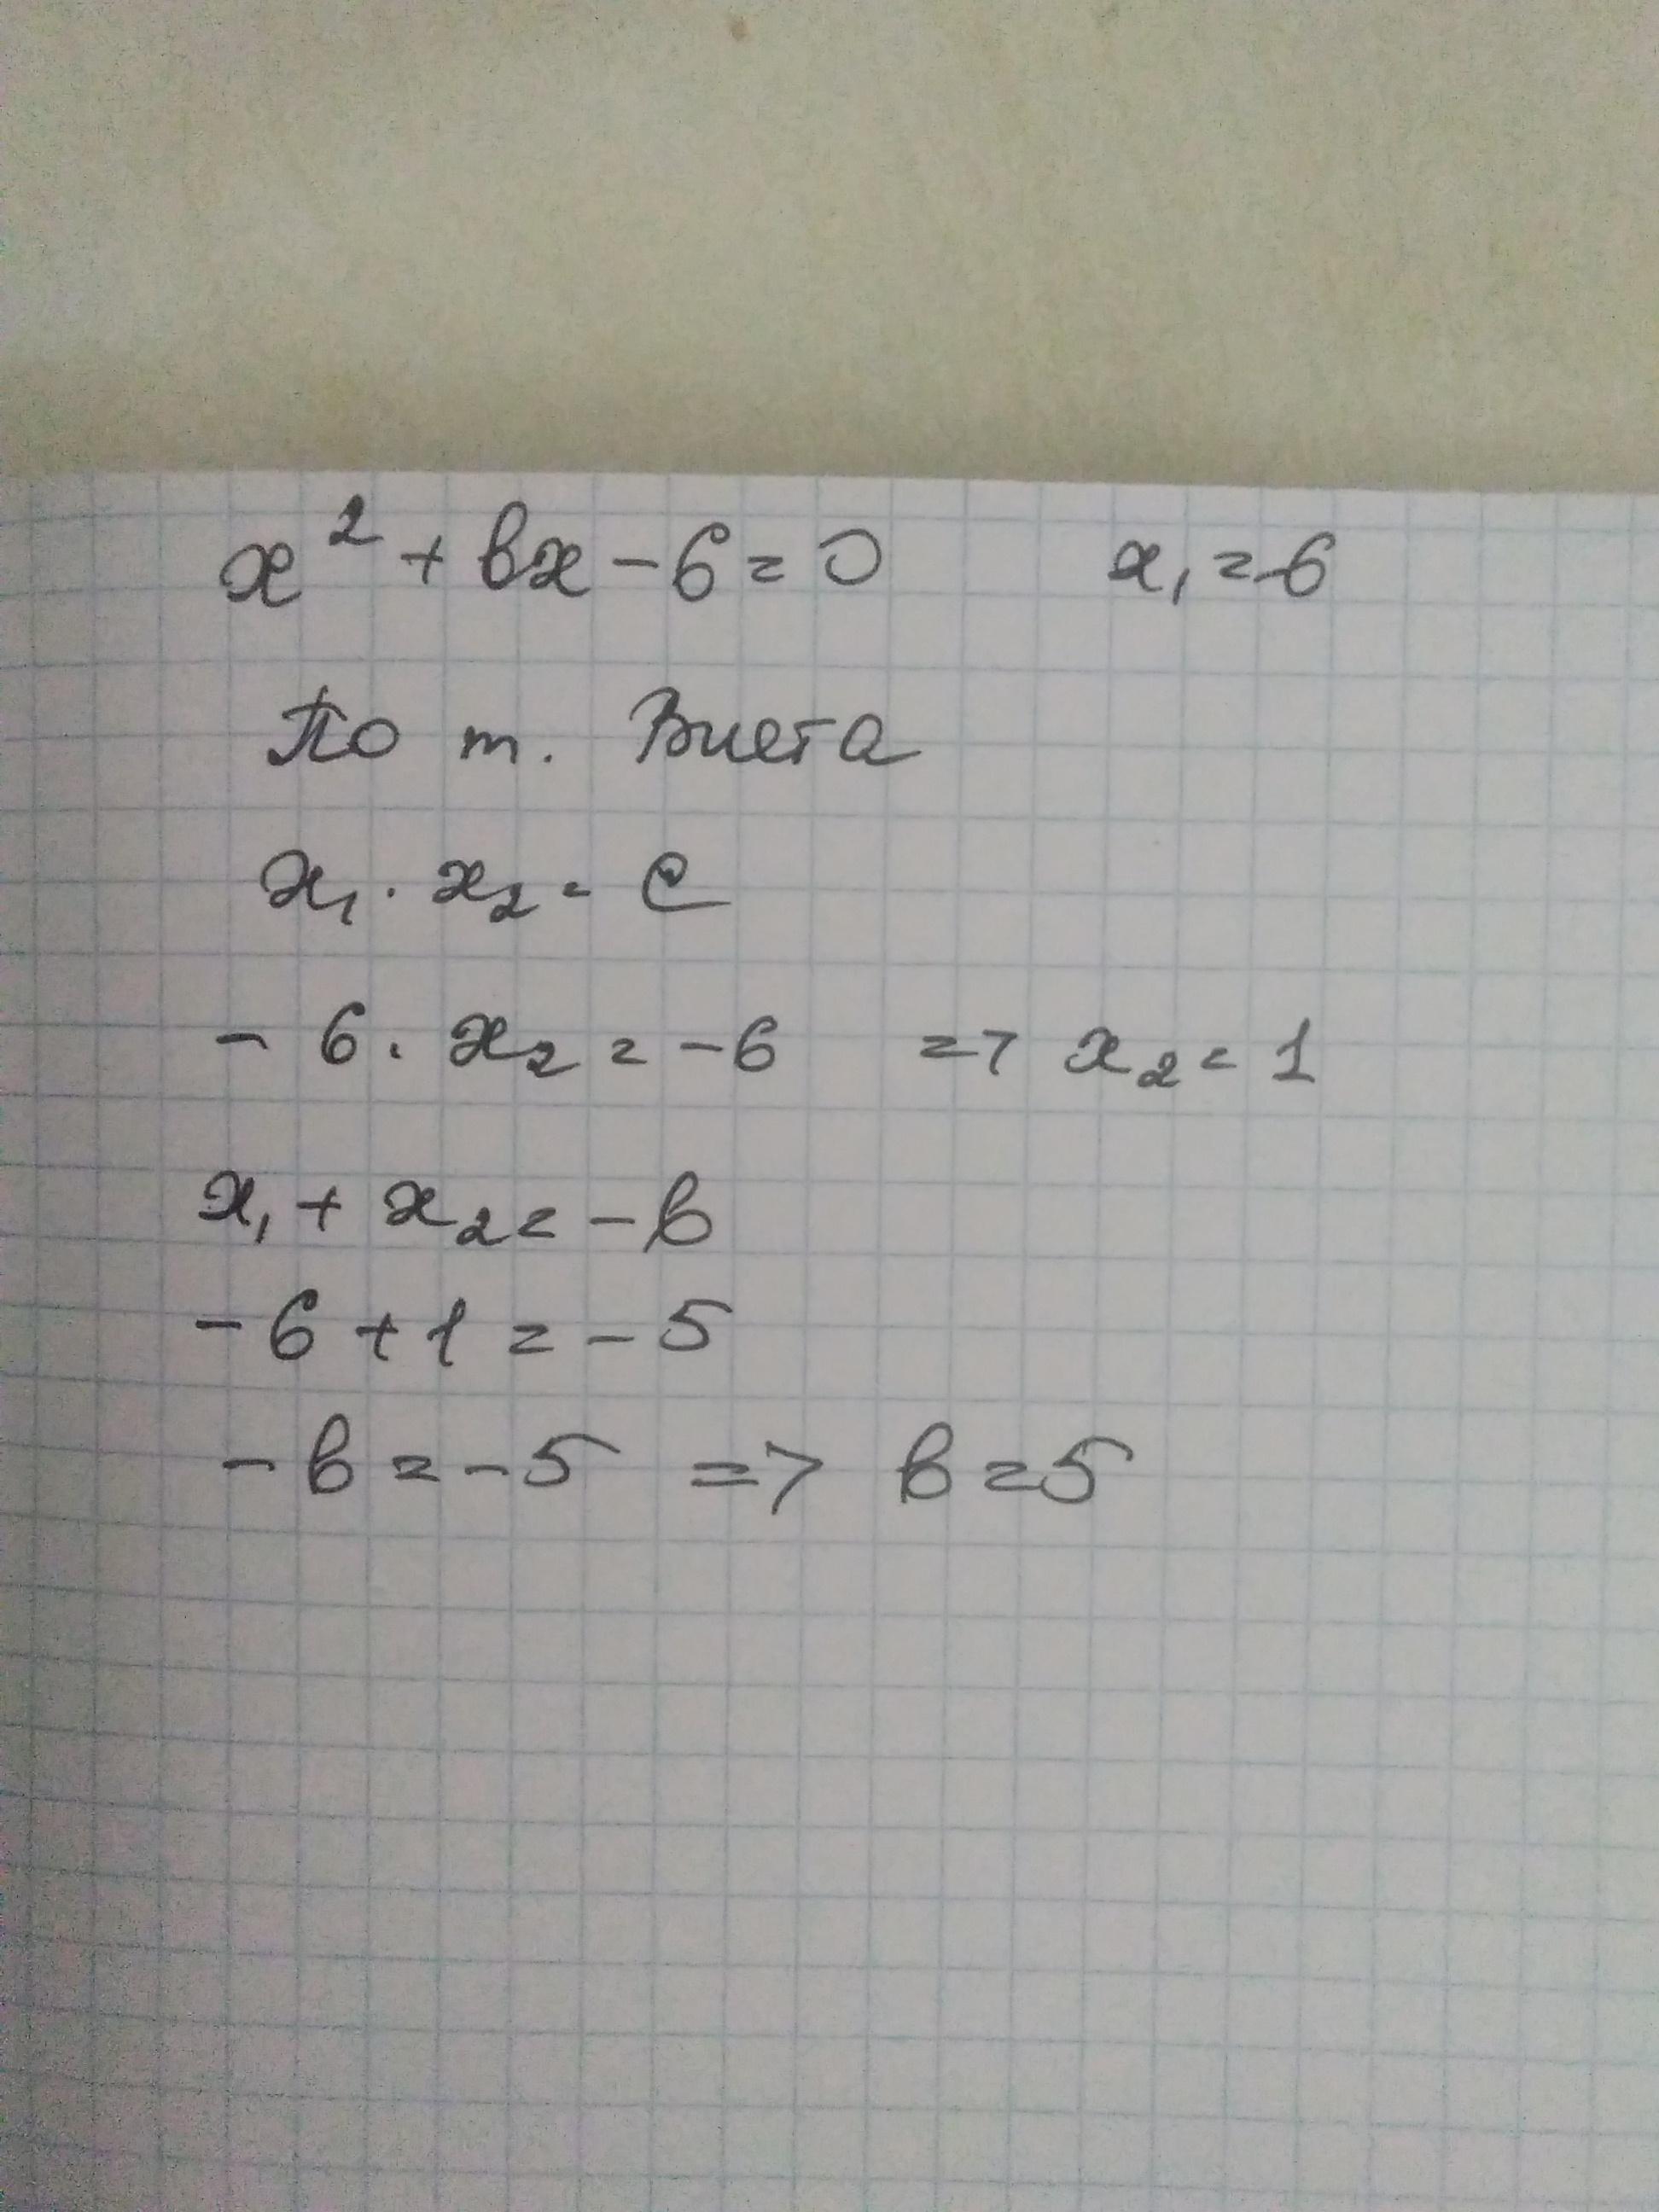 x² + bx - 6 = 0 x₁ = -6
По т. Виета
x₁ · x₂ = c
- 6 · x₂ = -6 => x₂ = 1
x₁ + x₂ = -b
- 6 + 1 = - 5
- b = - 5 => b = 5